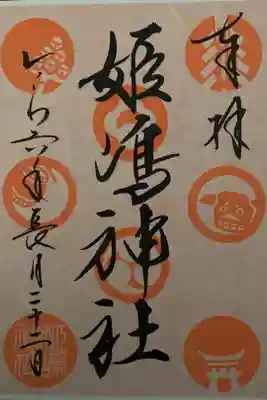 奉拝
姫嶋神社
令和六年長月二十二日